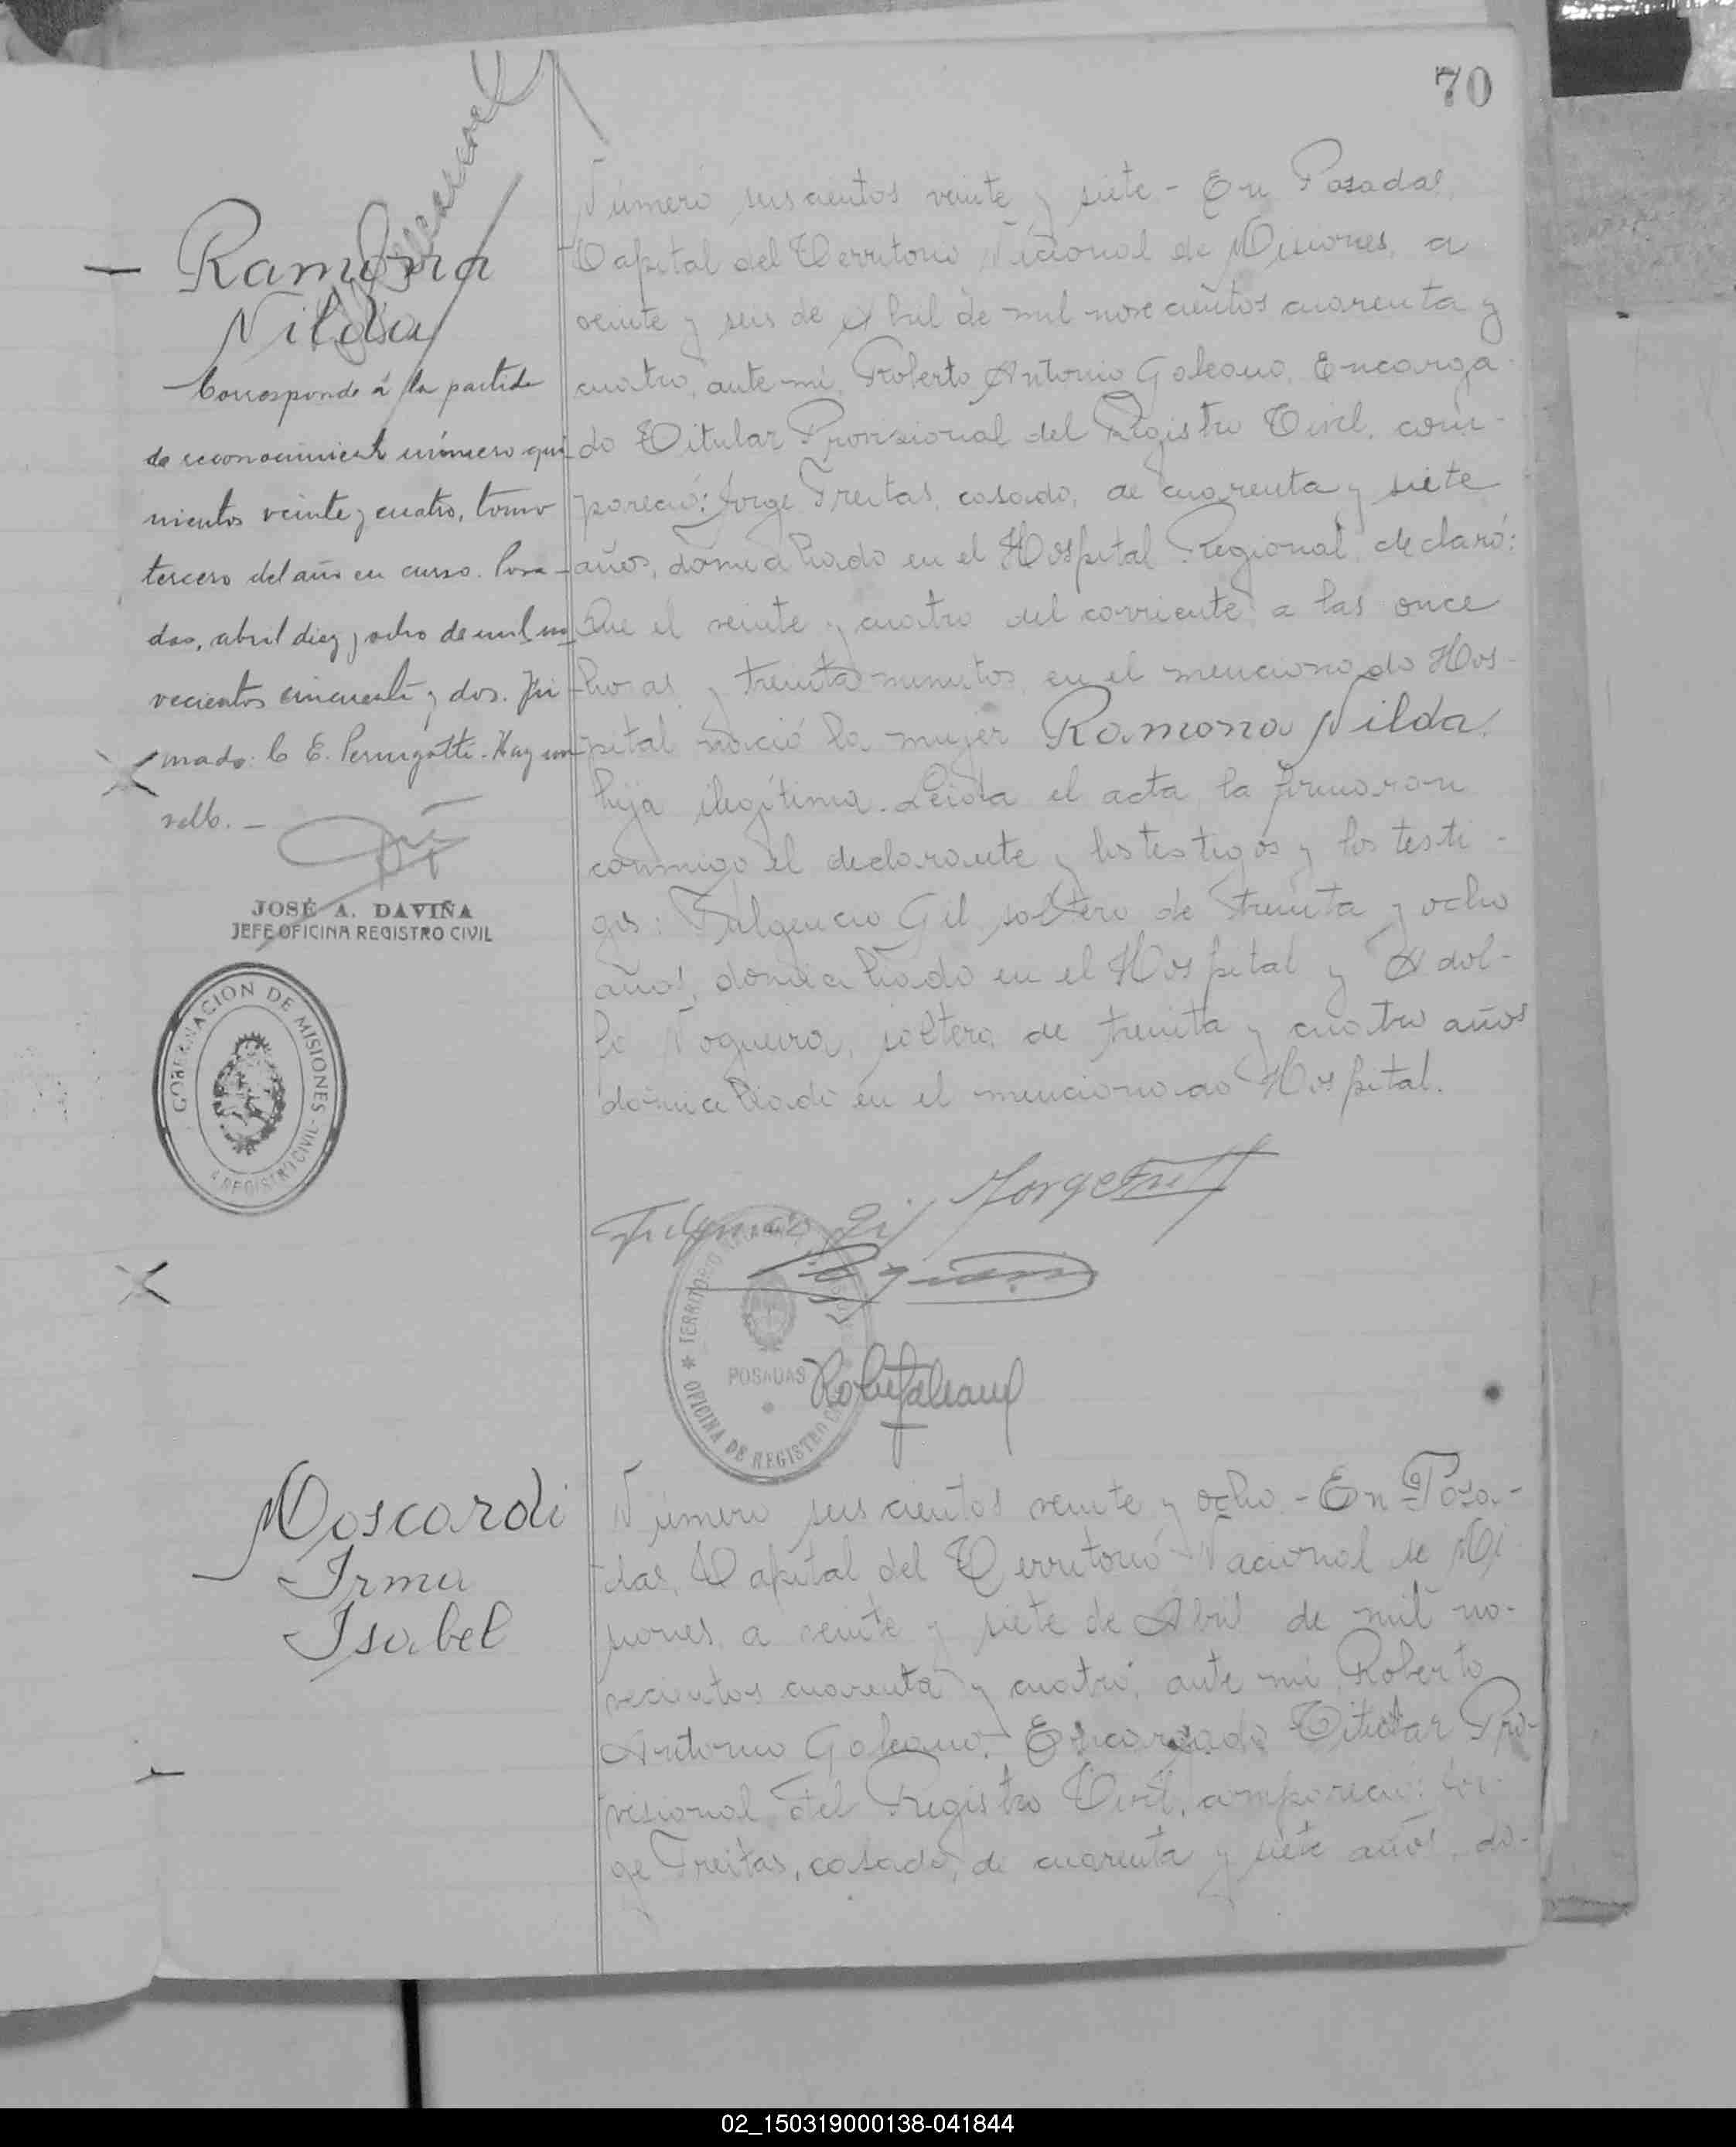 70
Ramona
Nilda
Corresponde á la partida
de reconocimient número qui
nientos veinte y cuatro, tomo
tercero del año en curso. Posa-
das, abril diez y ocho de mil no
vecientos cincuenta y dos. Fir
mado: C E. Perugatti. Hay un
sello. -
JOSÉ A. DAVIÑA
JEFE OFICINA REGISTRO CIVIL
GOBERNACION DE MISIONES - REGISTRO CIVIL
Número seiscientos veinte y siete - En Posadas,
Capital del Territorio Nacional de Misiones, a
veinte y seis de Abril de mil novecientos cuarenta y
cuatro, ante mi, Roberto Antonio Galeano, Encarga-
do Titular Provisional del Registro Civil, com-
pareció: Jorge Freitas, casado, de cuarenta y siete
años, domiciliado en el Hospital Regional, declaró:
Que el veinte y cuatro del corriente a las once
horas y treinta minutos en el mencionado Hos-
pital nació la mujer Ramona Nilda,
hija ilegítima. Leida el acta la firmaron
conmigo el declarante y los testigos y los testi-
gos: Fulgencio Gil, soltero de treinta y ocho
años, domiciliado en el Hospital y Adol-
fo Nogueira, soltero de treinta y cuatro años
domiciliado en el mencionado Hospital.
Jorge
TERRITORIO
POSADAS
OFICINA DE REGISTRO
Moscardi
Irma
Isabel
Número seiscientos veinte y ocho. - En Posa-
das, Capital del Territorio Nacional de Mi
siones, a veinte y siete de Abril de mil no-
vecientos cuarenta y cuatro, ante mi, Roberto
Antonio Galeano, Encargado Titular Pro-
visional del Registro Civil, compareció: Jor-
ge Freitas, casado, de cuarenta y siete años, do-
02_150319000138-041844